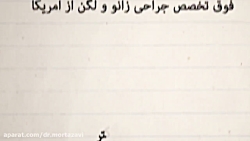 فوق تخصص جراحی زانو و لگن از امریکا
تر
aparat.com/dr.mortazavi